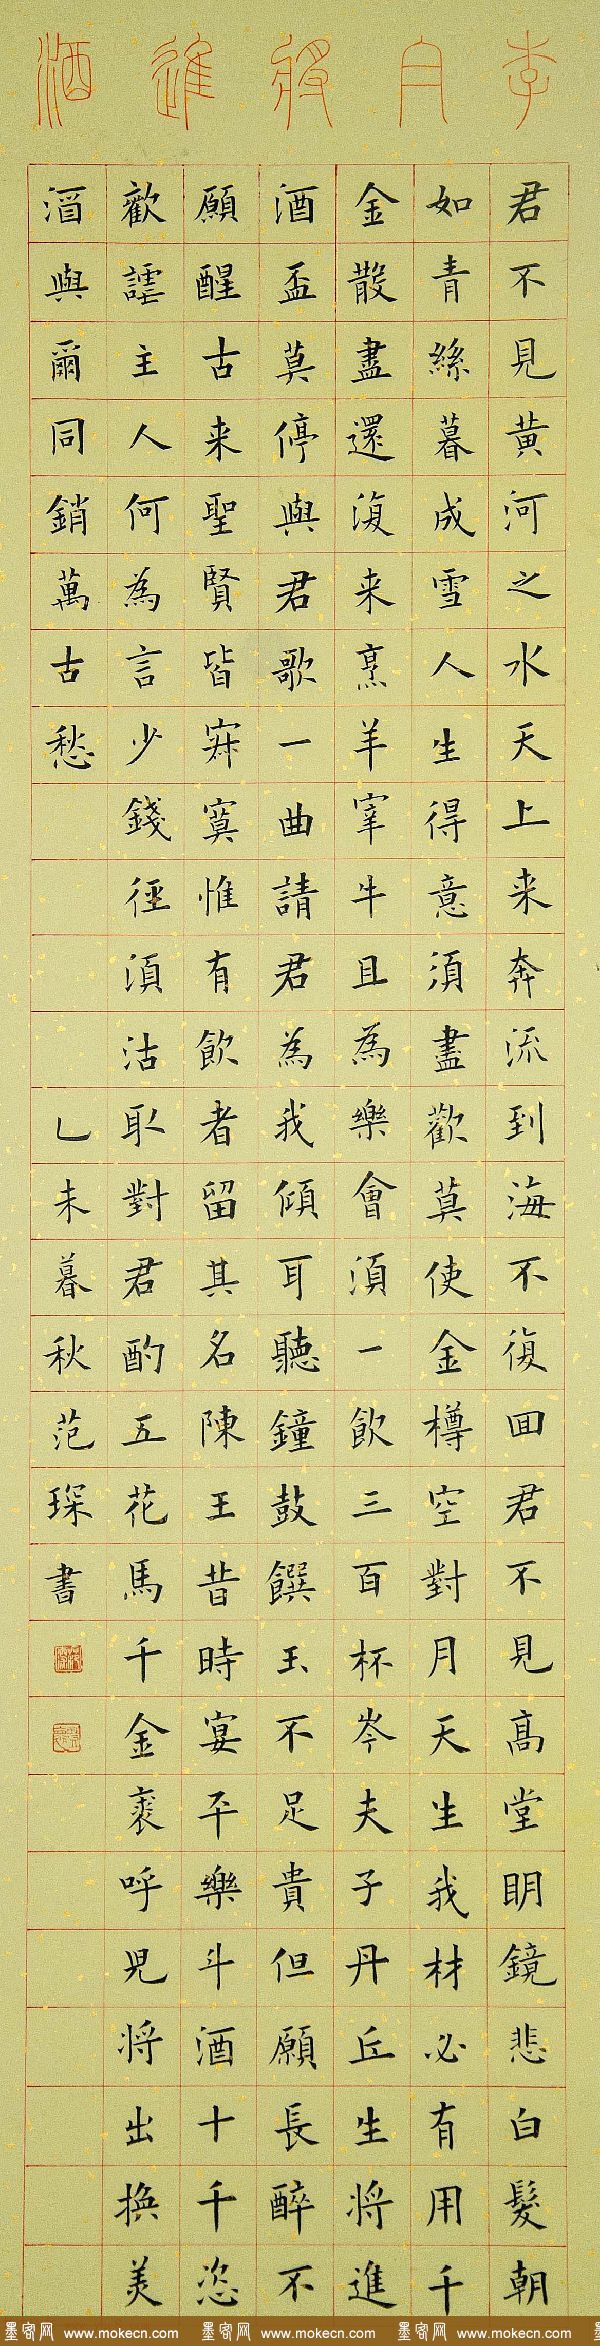 李白將進酒
君不見黃河之水天上来奔流到海不復回君不見高堂明鏡悲白髮朝
如青絲暮成雪人生得意須盡歡莫使金樽空對月天生我材必有用千
金散盡還復来烹羊宰牛且為樂會須一飲三百杯岑夫子丹丘生將進
酒盃莫停與君歌一曲請君為我傾耳聽鐘鼓饌玉不足貴但願長醉不
願醒古来聖賢皆寂寞惟有飲者留其名陳王昔時宴平樂斗酒十千恣
歡謔主人何為言少錢徑須沽取對君酌五花馬千金裘呼児將出換美
酒與爾同銷萬古愁
乙未暮秋范琛書
墨客网 www.mokecn.com 墨客网 www.mokecn.com 墨客网 www.mokecn.com 墨客网 www.mokecn.com